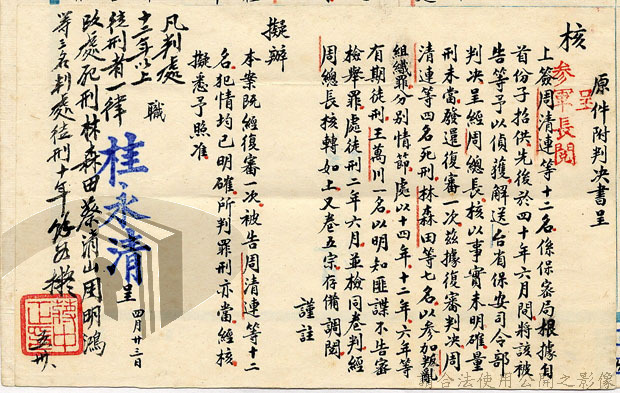 原件附判決書呈
核
呈
參軍長閱
上簽周清連等十二名係保密局根據自
首份子招供先後於四十年六月間將該被
告等予以偵獲解送台省保安司令部
判決呈經周總長核以事實未明確量
刑未當發還復審一次茲據復審判決周
清連等四名死刑林森田等七名以參加叛亂
組織罪分別情節處以十四年、十二年、六年等
有期徒刑王萬川一名以明知匪諜不告密
檢舉罪處徒刑二年六月並檢同卷判經
周總長核轉如上又卷五宗存備調閱
謹註
擬辦
本案既經復審一次被告周清連等十二
名犯情均已明確所判罪刑亦當經核
擬悉予照准
職
桂永清
呈
四月廿三日
凡判處
十二年以上
徒刑者一律
改處死刑林森田蔡消山周明鴻
等三名判處徒刑十年
蔣中正印
請合法使用公開之影像